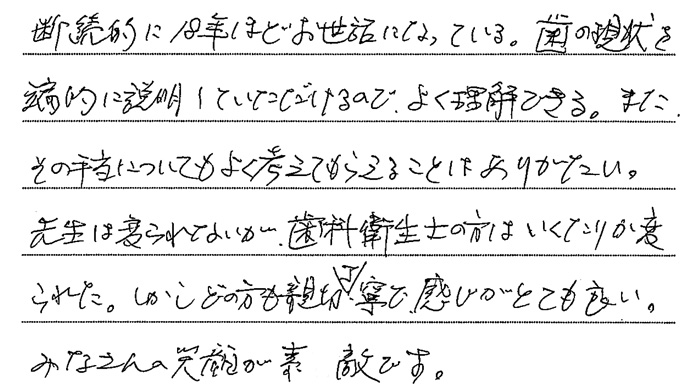 断続的に18年ほどお世話になっている。歯の現状を
端的に説明していただけるので、よく理解できる。また、
その手当についてもよく考えてもらえることはありがたい。
先生は変られてないが、歯科衛生士の方はいくたりか変
られた。しかしどの方も親切丁寧で、感じがとても良い。
みなさんの笑顔が素敵です。